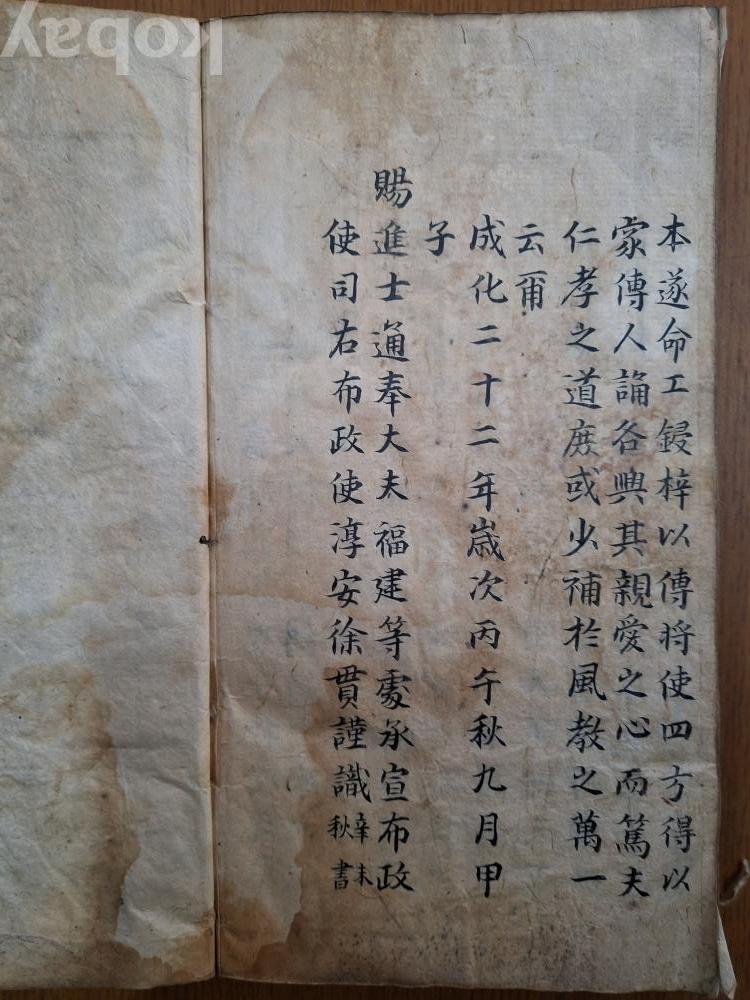 本遂命工鋟梓以傳將使四方得以
家傳人誦各興其親愛之心而篤夫
仁孝之道庶或少補於風教之萬一
云爾
成化二十二年歲次丙午秋九月甲
子
賜進士通奉大夫福建等處承宣布政
使司右布政使淳安徐貫謹識
辛未
秋書
kobay